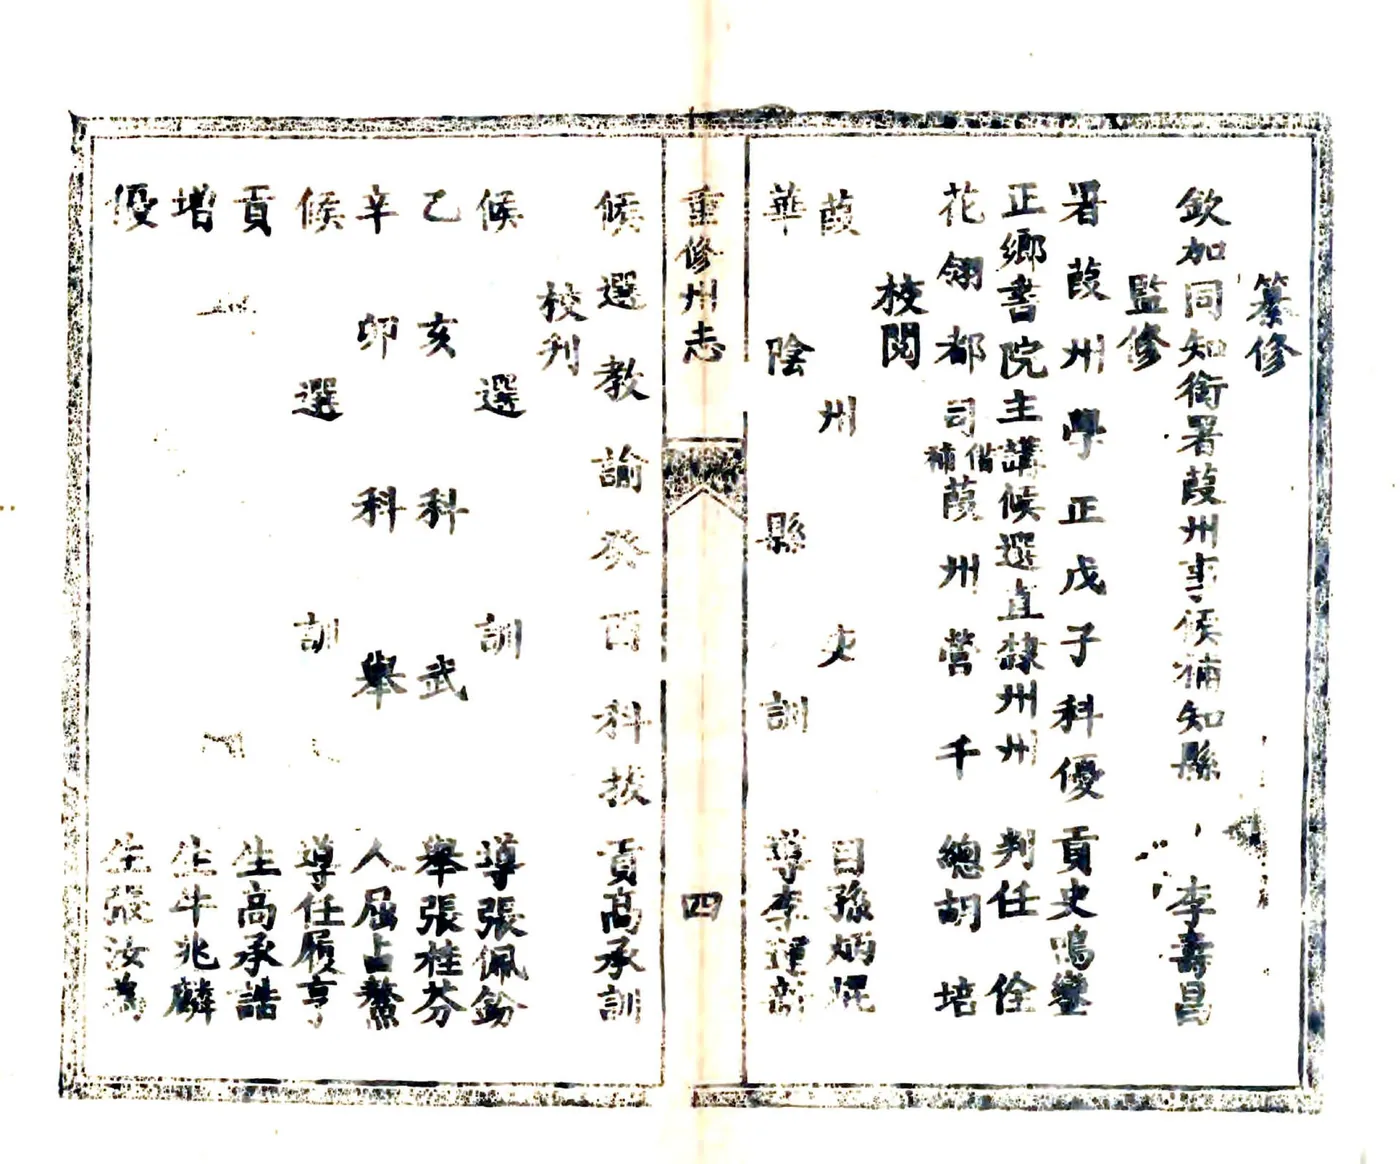 纂修
欽加同知銜署葭州事候補知縣 李壽昌
監修
署葭州學正戊子科優貢史鳴鑾
正鄉書院主講候選直隸州州判任佺
花翎都司偕補葭州營千總胡培
校閱
葭州吏目孫炳焜
華陰縣訓導李運
重修州志
四
候選教諭癸酉科拔貢高承訓
校刋
候選訓導張佩鈖
乙亥科武舉張桂芬
辛卯科舉人屈占鰲
候選訓導任履亨
貢生高承誥
增生牛兆麟
優生張汝為